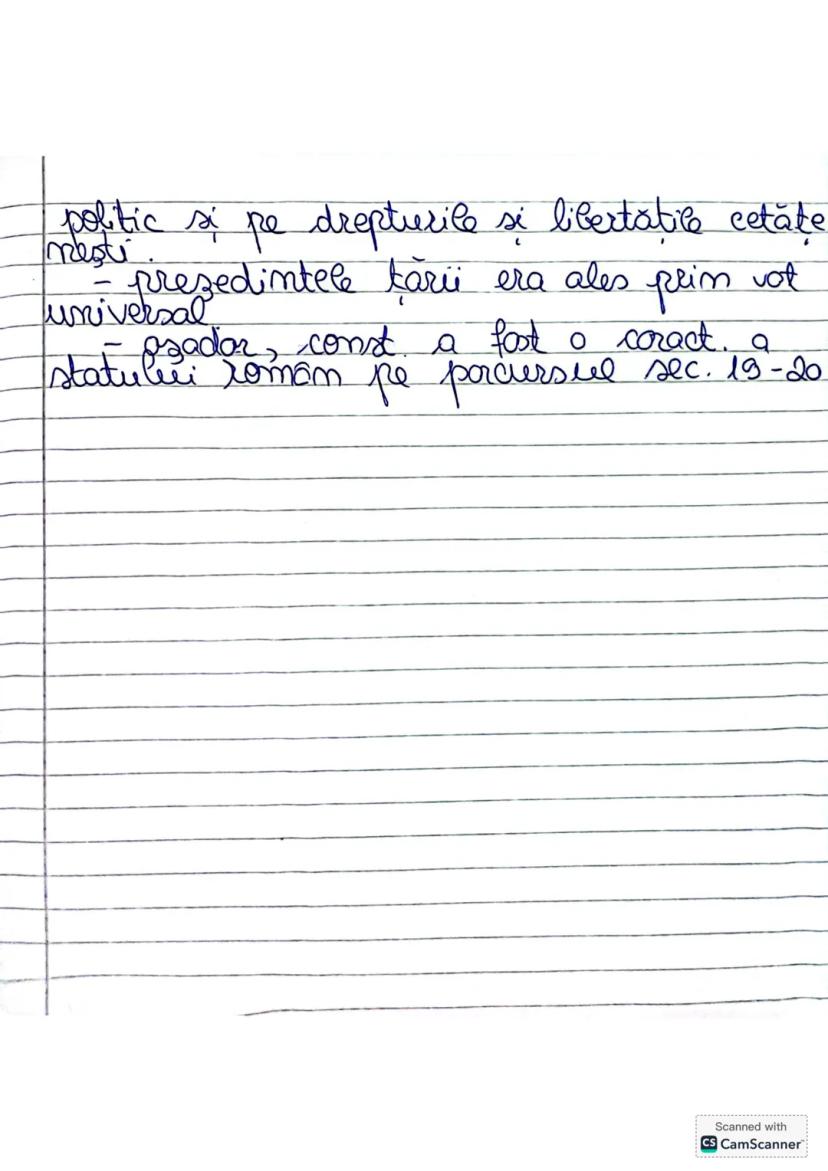 politic și pe drepturile și libertățile cetățe
nești.
- președintele țării era ales prin vot
universal
- așadar, const. a fost o caract. a
statului român pe parcursul sec. 19-20
Scanned with
CS CamScanner